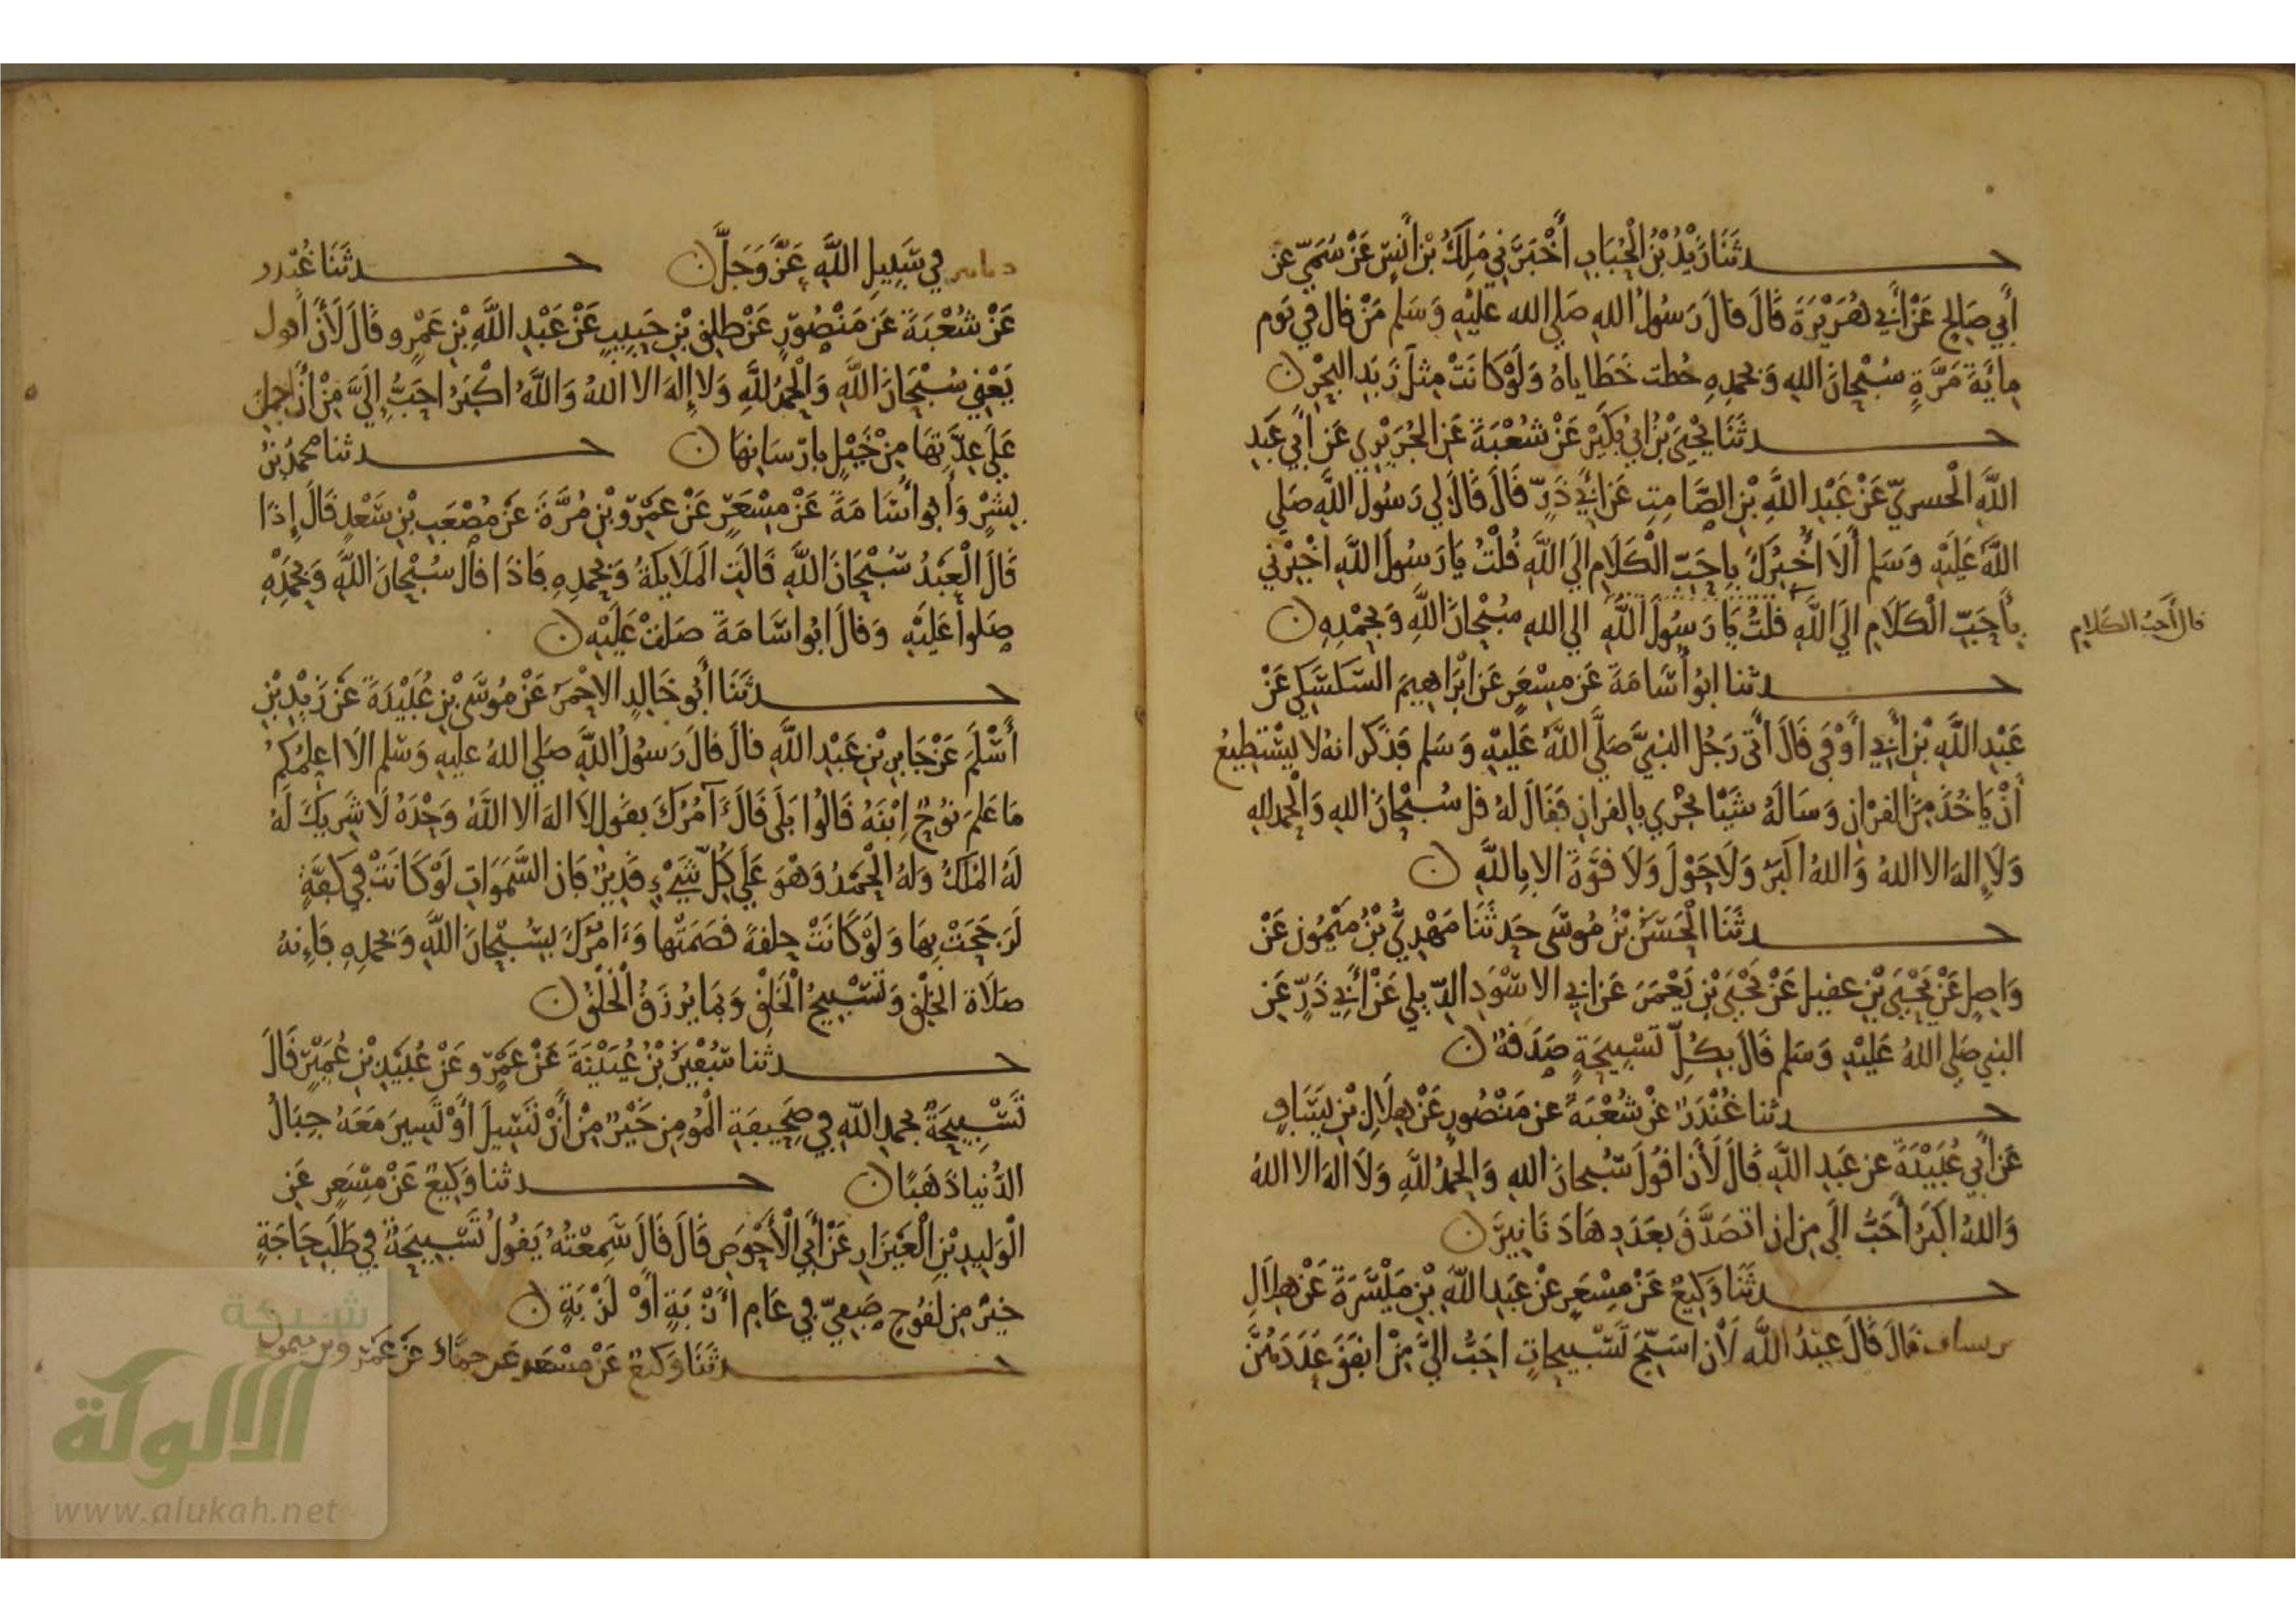 حدثَنَا زَيْدُ بْنُ الْحُبَابِ أَخْبَرَنِي مَلِكُ بْنُ أَنَسٍ عَنْ سُمَيٍّ عَنْ
أَبِي صَالِحٍ عَنْ أَبِي هُرَيْرَةَ قَالَ قَالَ رَسُولُ اللهِ صَلى الله عليْهِ وَسَلم مَنْ قال في يَوم
مِايَةَ مَرَّةٍ سُبْحَانَ اللهِ وَبحمدِهِ حُطت خَطَاياهُ وَلَوْ كانَتْ مِثْلَ زَبَدِ البَحْرِ ن
حدثَنَا يَحْيَى بْنُ أبِي بُكَيْرٍ عَنْ شُعْبَةَ عَنِ الجُرَيْرِي عَن أبِي عَبدِ
اللَّهِ الْحسريّ عَنْ عَبْدِ اللَّهِ بْنِ الصَّامِتِ عَن أَبِي ذَرٍّ قَالَ قَالَ لي رَسُولُ اللَّهِ صَلى
اللَّهُ عَلَيْهِ وَسَلم أَلَا أُخْبِرُكَ بِاحَبِّ الْكَلَامِ الَي اللَّهِ قُلْتُ يَا رَسُولَ اللَّهِ اخْبِرْني
بِأَحَبِّ الْكَلَامِ الَي اللَّهِ قلْتُ يَا رَسُولَ اللَّهِ الي اللهِ سُبْحَانَ اللَّهِ وَبِحَمْدِهِ ن
قال أَحَبُّ الكَلامِ
حدثنا ابُو أُسَامَةَ عَن مِسْعَرٍ عَن ابْرَاهِيمَ السَّكسَكِي عَنْ
عَبْدِ اللَّهِ بْنِ أَبِي أَوْفَى قَالَ أَتَى رَجُل النبيَّ صَلَّى اللَّهُ عَلَيْهِ وَسَلم فَذَكَر انهُ لا يسْتطِيعُ
أَنْ يَاخُذَ مِنَ القرْان وَسَالَهُ شَيْئا يُجْزي بِالقران فَقَالَ لهُ قل سُبْحَانَ اللهِ وَالْحمدلله
وَلَا الهَ الا اللهُ وَاللهُ اكْبَرُ وَلَا حَوْلَ وَلَا قوَّةَ الا بِاللَّهِ ن
حدثَنَا الْحَسَنُ بْنُ مُوسَى حَدثَنَا مَهْدِيُّ بْنُ مَيْمُونٍ عَنْ
وَاصِلٍ عَنْ يَحْيَى بْنِ عقيل عَنْ يَحْيَى بْنِ يَعْمَرَ عَن ابِي الاسْوَدِ الدّيلي عَنْ أَبِي ذَرٍّ عَنِ
النبي صَلى اللهُ عَلَيْهِ وَسَلم قَالَ بِكُلِّ تَسْبِيحَةٍ صَدَقَةٌ ن
حدثنا غُنْدَرٌ عَنْ شُعْبَةَ عن مَنْصُورٍ عَنْ هِلَالِ بْنِ يَسَافٍ
عَن أَبِي عُبَيْدَةَ عن عَبدِ اللَّهِ قَالَ لَأَنْ اقُولَ سُبْحانَ اللهِ وَالحَمْدُ للَّهِ وَلَا الهَ الا اللهُ
وَاللهُ اكبَرُ أَحَبُّ الَي مِن ان اتصَدَّقَ بِعَدَدِهَا دَنَانِيرَ ن
حدثَنَا وَكِيعٌ عَنْ مِسْعَرٍ عَنْ عَبدِ اللَّهِ بْنِ مَيْسَرَةَ عَنْ هِلَالِ
بن يساف قَالَ قَالَ عَبْدُ اللَّهِ لَأَن اسَبِّحَ تَسْبِيحَاتٍ احَبُّ اليَّ مِنْ ان انفِقَ عَدَدَهُنَّ
دنانير في سَبِيلِ اللَّهِ عَزَّ وَجَلَّ ن حدثَنَا غُنْدر
عَنْ شُعْبَةَ عَن مَنْصُورٍ عَنْ طلِقِ بْنِ حَبِيبٍ عَنْ عَبْدِ اللَّهِ بْنِ عَمْرٍو قَالَ لَأَنْ أقول
يَعْنِي سُبْحَانَ اللَّهِ وَالْحَمْدُ للَّهِ وَلا إِلهَ الا اللهُ وَاللَّهُ اكْبَرُ احَبُّ إِلَيَّ مِنْ أَنْ احمل
عَلَى عِدَّتِهَا مِنْ خَيْلٍ بِارْسَانِهَا ن حدثنا محمدُ بْنُ
بِشْرٍ وَأَبو أُسَامَةَ عَنْ مِسْعَرٍ عَنْ عَمْرِو بْنِ مُرَّةَ عَنْ مُصْعَبِ بْنِ سَعْدٍ قَالَ إِذَا
قَالَ الْعَبْدُ سُبْحَانَ اللَّهِ قَالَتِ المَلَايكَةُ وَبِحَمدِهِ فَاذَا قال سُبْحَانَ اللَّهِ وَبِحَمْدِهِ
صَلوا عَلَيْهِ وَقالَ ابُو اسَامَةَ صَلتْ عَلَيْهِ ن
حدثَنَا أَبُو خَالِدٍ الاحْمَرُ عَنْ مُوسَى بْنِ عُبَيْدَةَ عَنْ زَيْدِ بْنِ
أَسْلَمَ عَنْ جَابِرِ بْنِ عَبْدِ اللَّهِ قالَ قالَ رَسُولُ اللَّهِ صَلى اللهُ عليهِ وَسَلم الَا اعلِمُكمْ
مَا عَلمَ نوُحٌ اِبْنَهُ قَالُوا بَلَى قَالَ آمُرُكَ بقولِ لا اله الا اللَّهُ وَحْدَهُ لَا شَرِيكَ لَهُ
لَهُ المُلكُ وَلهُ الْحَمْدُ وَهْوَ عَلَى كُلِّ شَيْءٍ قَدِيرٌ فَان السَّمَوَاتِ لَوْ كَانَتْ فِي كَفةٍ
لَرَجَحَتْ بِهَا وَلَوْ كَانَتْ حلقةً قصَمَتْها وَءَامُرُكَ بِسُبْحَانَ اللَّهِ وَبحمدِهِ فَإِنهُ
صَلَاة الخَلْقِ وَتَسْبِيحُ الْخَلْقِ وَبِهَا يُرْزَقُ الْخَلْقُ ن
حدثنا سُفْيَنُ بْنُ عُيَيْنَةَ عَنْ عَمْرٍو عَنْ عُبَيْدِ بْنِ عُمَيْرٍ قَالَ
تَسْبِيحَةٌ بحمدِ اللَّهِ فِي صَحِيفَةِ الْمُومِنِ خَيْرٌ مِنْ أَنْ تَسِيلَ أَوْ تَسِيرَ مَعَهُ جِبَالُ
الدُّنيا ذَهَبًا ن حدثنا وَكِيعٌ عَنْ مِسْعَرٍ عَنِ
الْوَلِيدِ بْنِ الْعَيْزَارِ عَنْ أَبِي الْأَحْوَصِ قَالَ قَالَ سَمِعْتُهُ يَقُولُ تَسْبِيحَةٌ فِي طَلَبِ حَاجَةٍ
خيْرٌ مِن لقُوحٍ صَفِيٍّ فِي عَامِ أَزْبَةٍ أَوْ لَزْبَةٍ ن
حدثَنَا وَكيعٌ عَنْ مِسْعَرٍ عَن حمَّادٍ عَنْ عَمْرو بن ميمون
شبكة
الألوكة
www.alukah.net